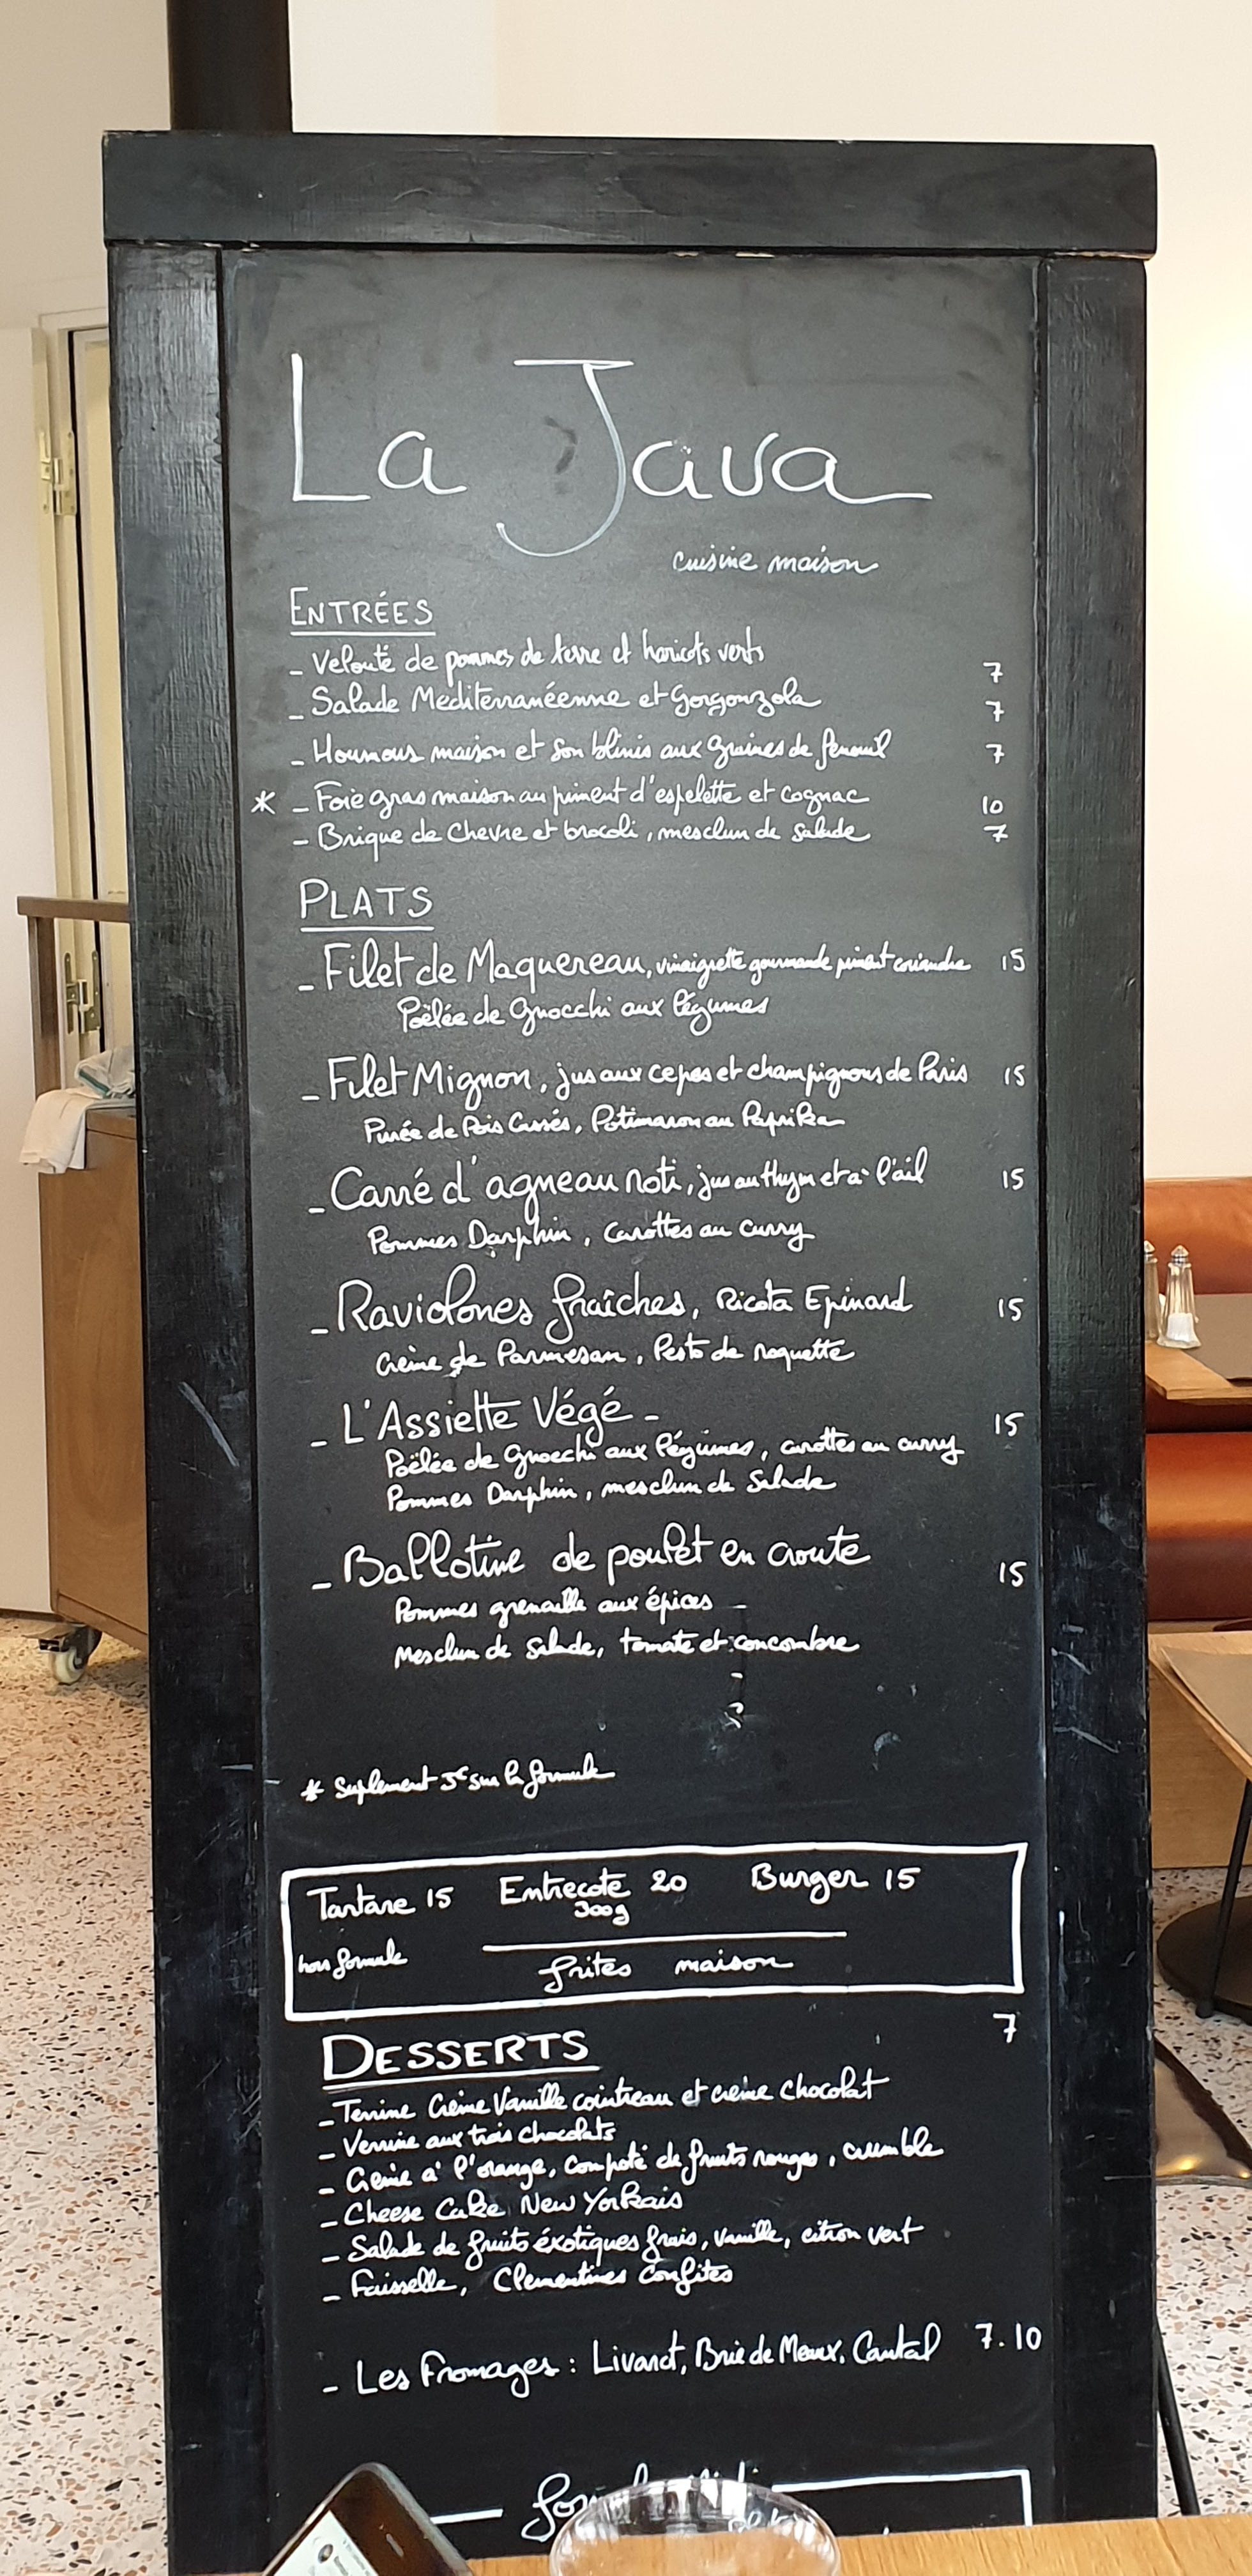 La Java
cuisine maison
ENTRÉES
- Velouté de pommes de terre et haricots verts 7
- Salade Mediterranéenne et Gorgonzola 7
- Houmous maison et son blinis aux graines de fenouil 7
* - Foie gras maison au piment d'espelette et cognac 10
- Brique de Chevre et brocoli, mesclun de salade 7
PLATS
- Filet de Maquereau, vinaigrette gourmande piment coriandre 15
Poëlée de Gnocchi aux légumes
- Filet Mignon, jus aux cepes et champignons de Paris 15
Purée de Pois Cassés, Potimaron au Paprika
- Carré d'agneau roti, jus au thym et à l'ail 15
Pommes Darphin, Carottes au curry
- Raviolones fraîches, Ricota Epinard 15
Crème de Parmesan, Pesto de roquette
- L'Assiette Végé - 15
Poëlée de Gnocchi aux légumes, carottes au curry
Pommes Darphin, mesclun de Salade
- Ballotine de poulet en croute 15
Pommes grenaille aux épices -
Mesclun de Salade, tomate et concombre
* Suplement 3€ sur la formule
Tartare 15 Entrecote 20 Burger 15
300g
hors formule frites maison
DESSERTS 7
- Terrine Crème Vanille cointreau et crème Chocolat
- Verrine aux trois chocolats
- Crème à l'orange, Compoté de fruits rouges, crumble
- Cheese Cake New Yorkais
- Salade de fruits éxotiques frais, vanille, citron vert
- Faisselle, Clementines Confites
- Les Fromages : Livarot, Brie de Meaux, Cantal 7.10